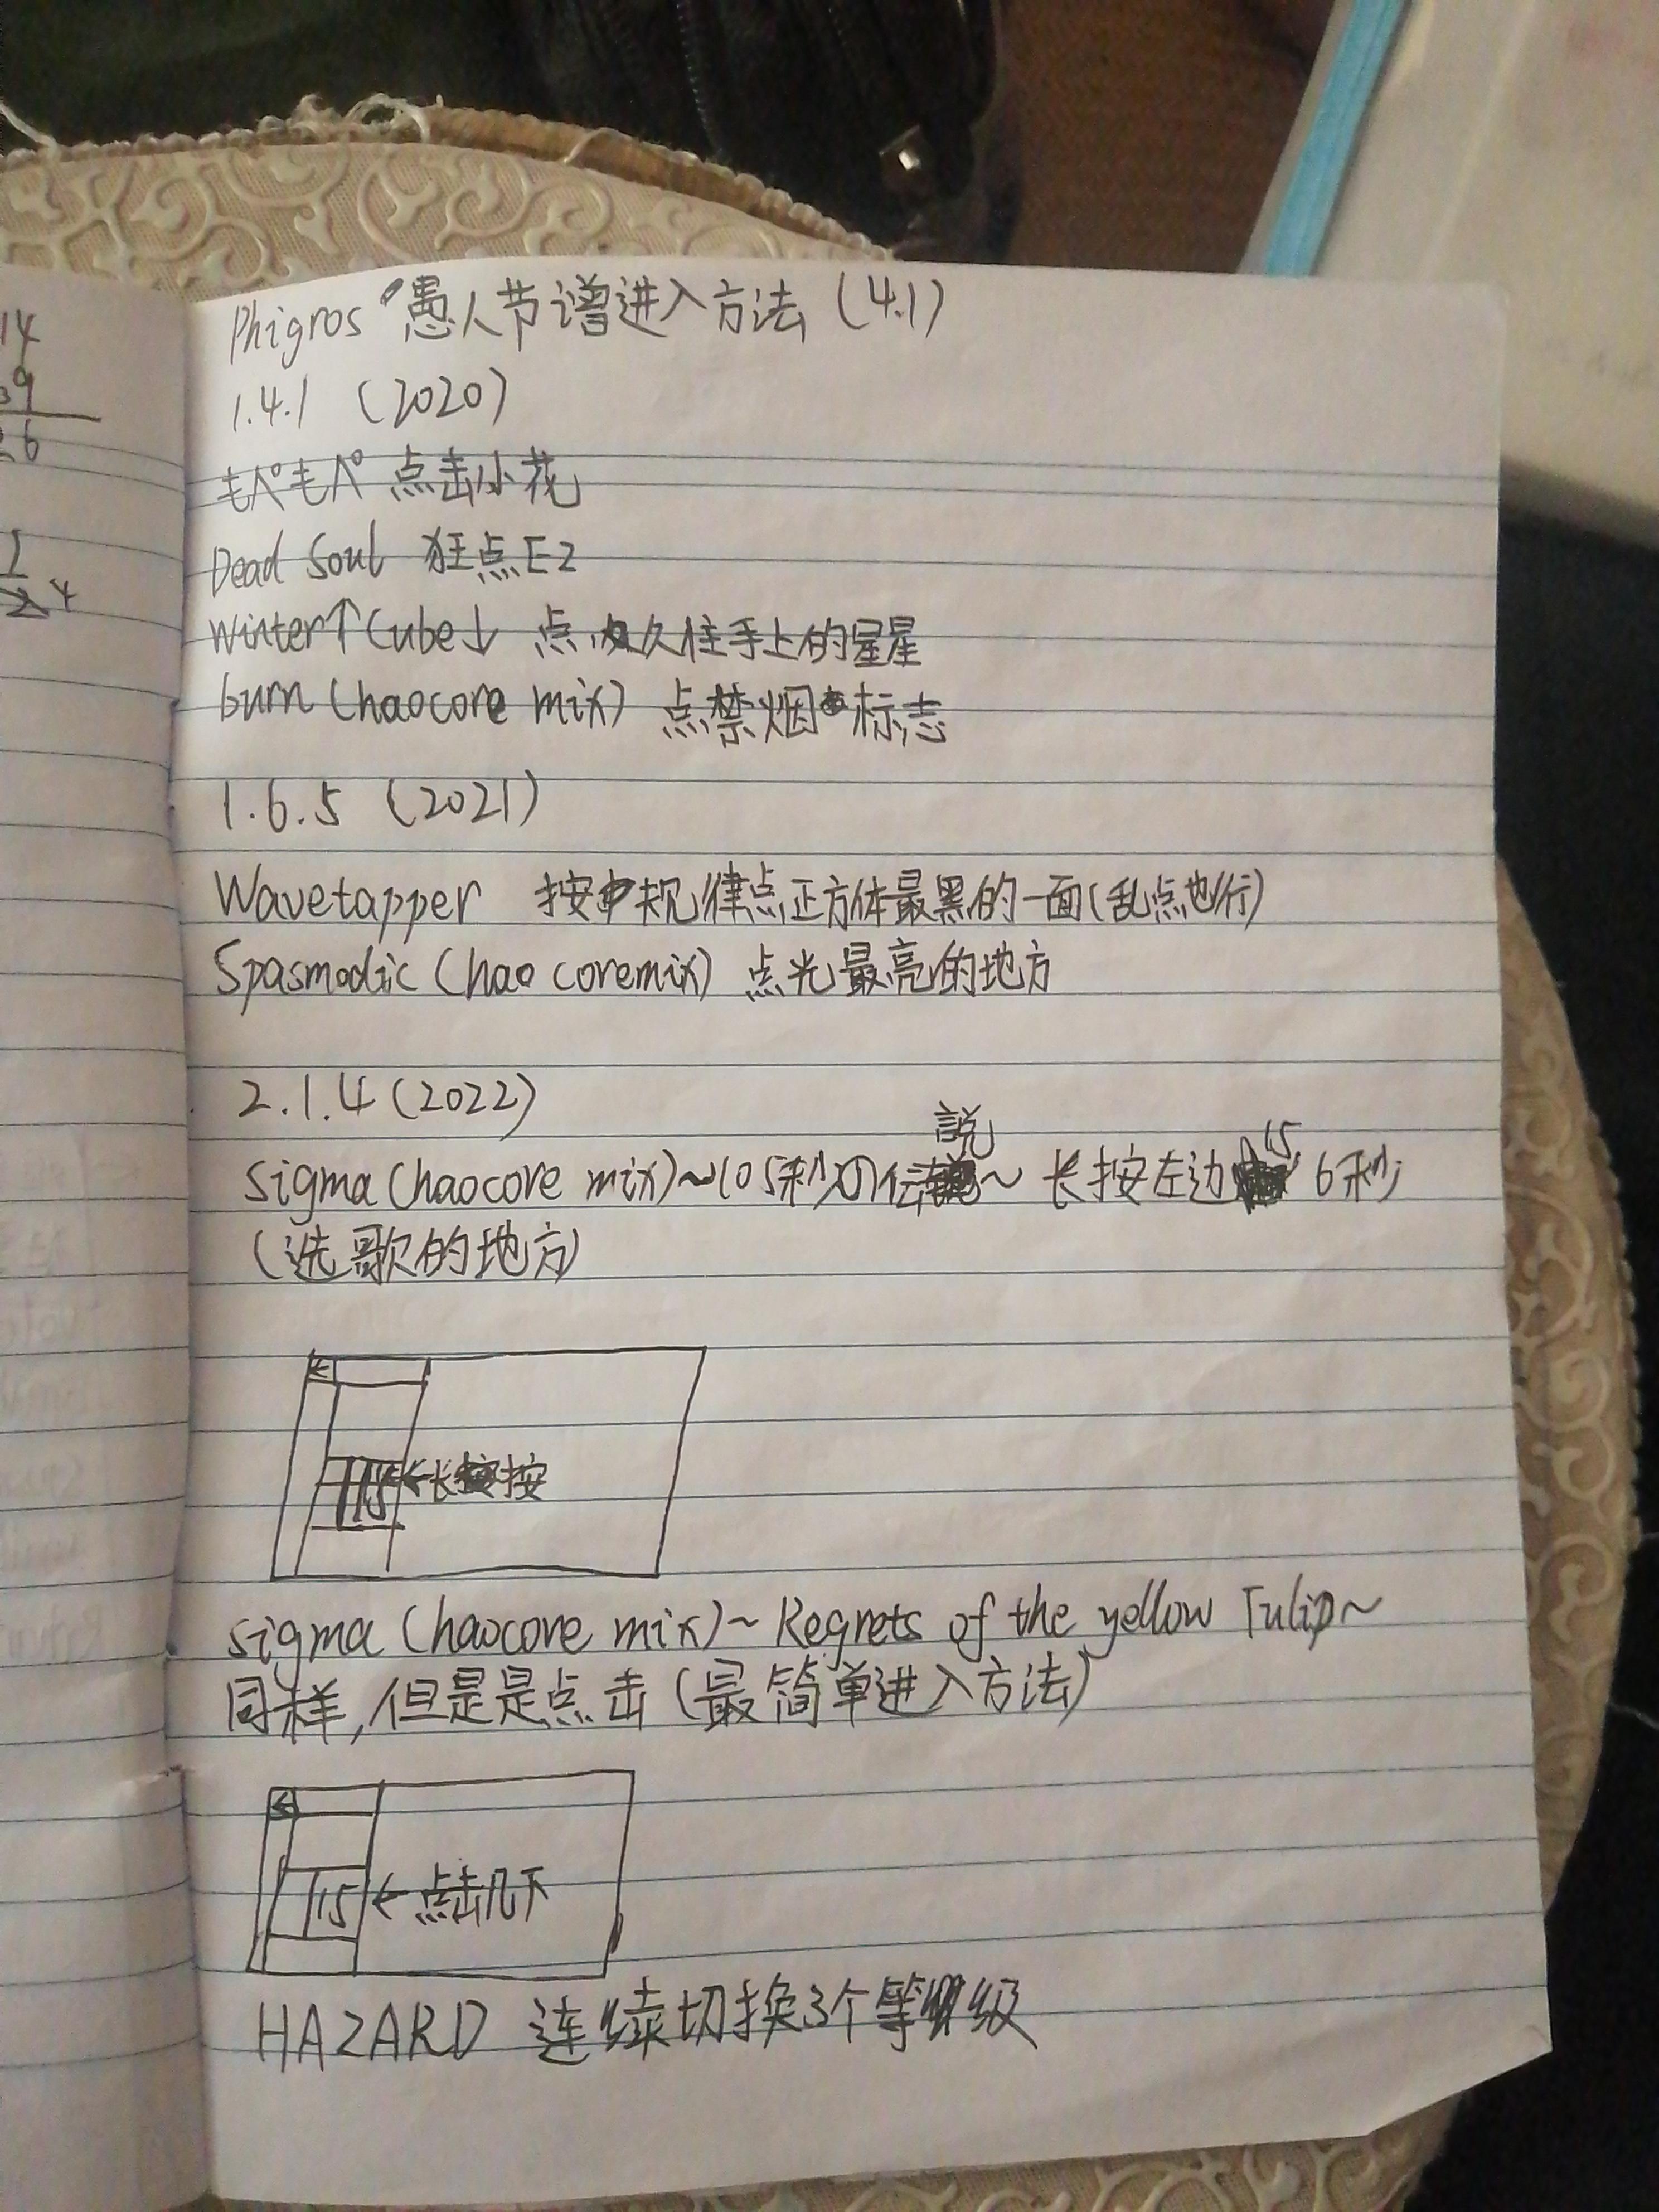 14
39
26
1
24
Phigros 愚人节谱进入方法 (4.1)
1.4.1 (2020)
もぺもぺ 点击小花
Dead Soul 狂点EZ
Winter↑Cube↓ 点久住手上的星星
burn (haocore mix) 点禁烟标志
1.6.5 (2021)
Wavetapper 按规律点正方体最黑的一面(乱点也行)
Spasmodic (haocore mix) 点光最亮的地方
2.1.4 (2022)
sigma (haocore mix) ~105秒の伝説~ 长按左边15 6秒
(选歌的地方)
← 
15 ←长按
sigma (haocore mix) ~ Regrets of the yellow Tulip~
同样,但是是点击(最简单进入方法)
←
15 ← 点击几下
HAZARD 连续切换3个等级